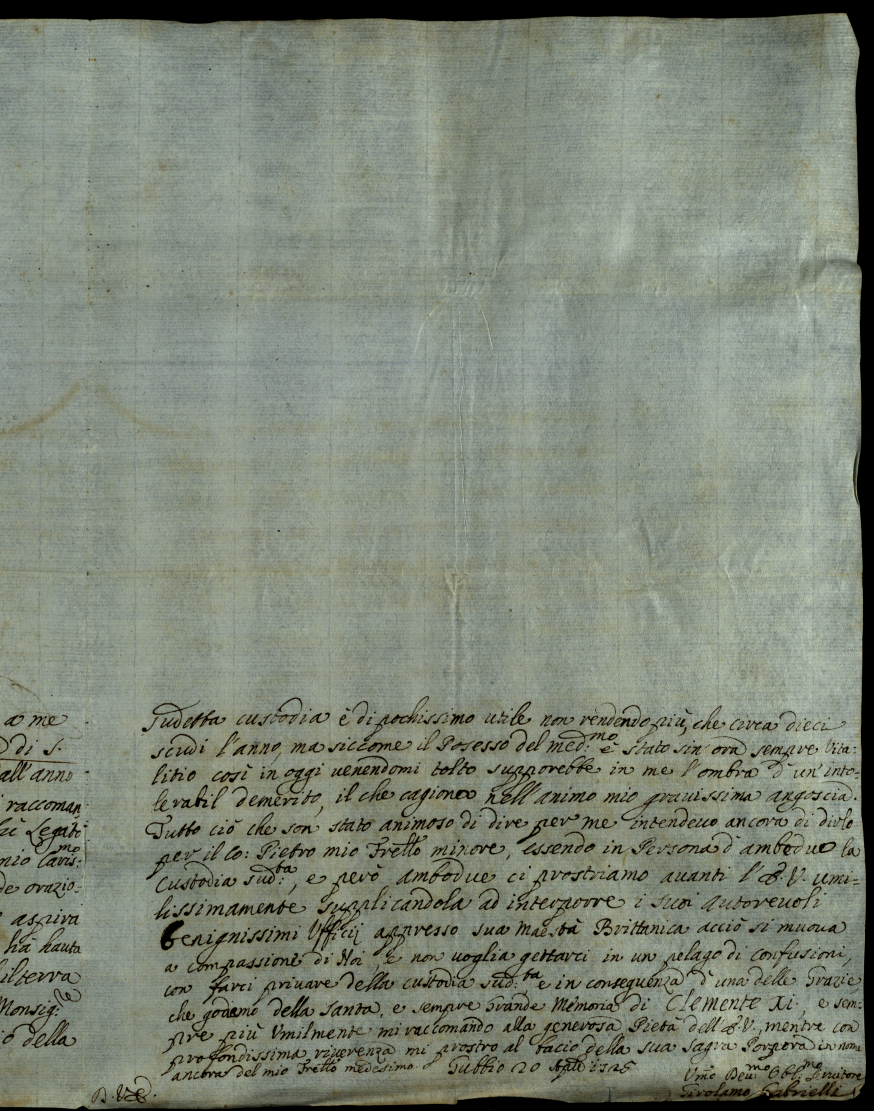 a me
di S.
all'anno
raccoman
Legati
mio Cariss:mo
de orazio:
aspira
hà hauta
ilterra
Monsig:re
della
sudetta custodia è di pochissimo utile non rendendo più, che circa dieci
scudi l'anno, ma siccome il Posesso del med:mo è stato sin ora sempre vita:
litio così in oggi venendomi tolto supporebbe in me l'ombra d'un'into:
lerabil demerito, il che cagiona nell'animo mio gravissima angoscia.
Tutto ciò che son stato animoso di dire per me intendevo ancora di dirlo
per il Co: Pietro mio Frello minore, essendo in Persona d'ambedue la
Custodia sud:ta, e però ambodue ci prostriamo avanti l'E.V. umi:
lissimamente supplicandola ad interporre i suoi autorevoli
benignissimi Ufficij appresso sua Maestà Brittanica acciò si muova
a compassione di Noi, e non voglia gettarci in un pelago di confusioni,
con farci privare della custodia sud:ta e in conseguenza d'una delle Grazie
che godemo della santa, e sempre Grande Memoria di Clemente XI, e sem:
pre più Umilmente mi raccomando alla generosa Pietà dell'E.V., mentre con
profondissima riverenza mi prostro al bacio della sua sagra Porpora in nome
ancora del mio Frello medesimo. Gubbio 20
Umo Devmo Obblmo Servitore
Girolamo Gabrielli